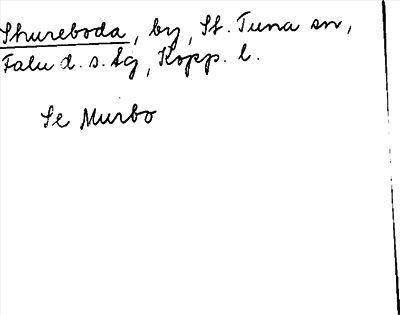 Skureboda, by, St. Tuna sn,
Falu d. s. lg, Kopp. l.
Se Murbo